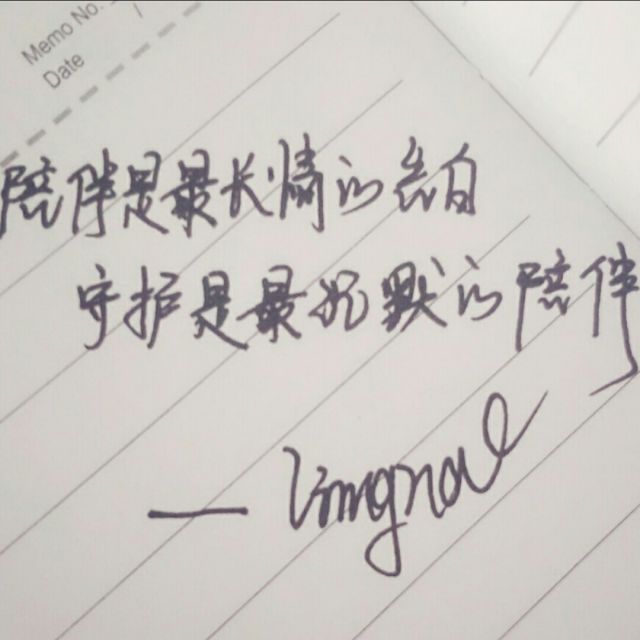 Memo No.
Date /
陪伴是最长情的告白
守护是最沉默的陪伴
—